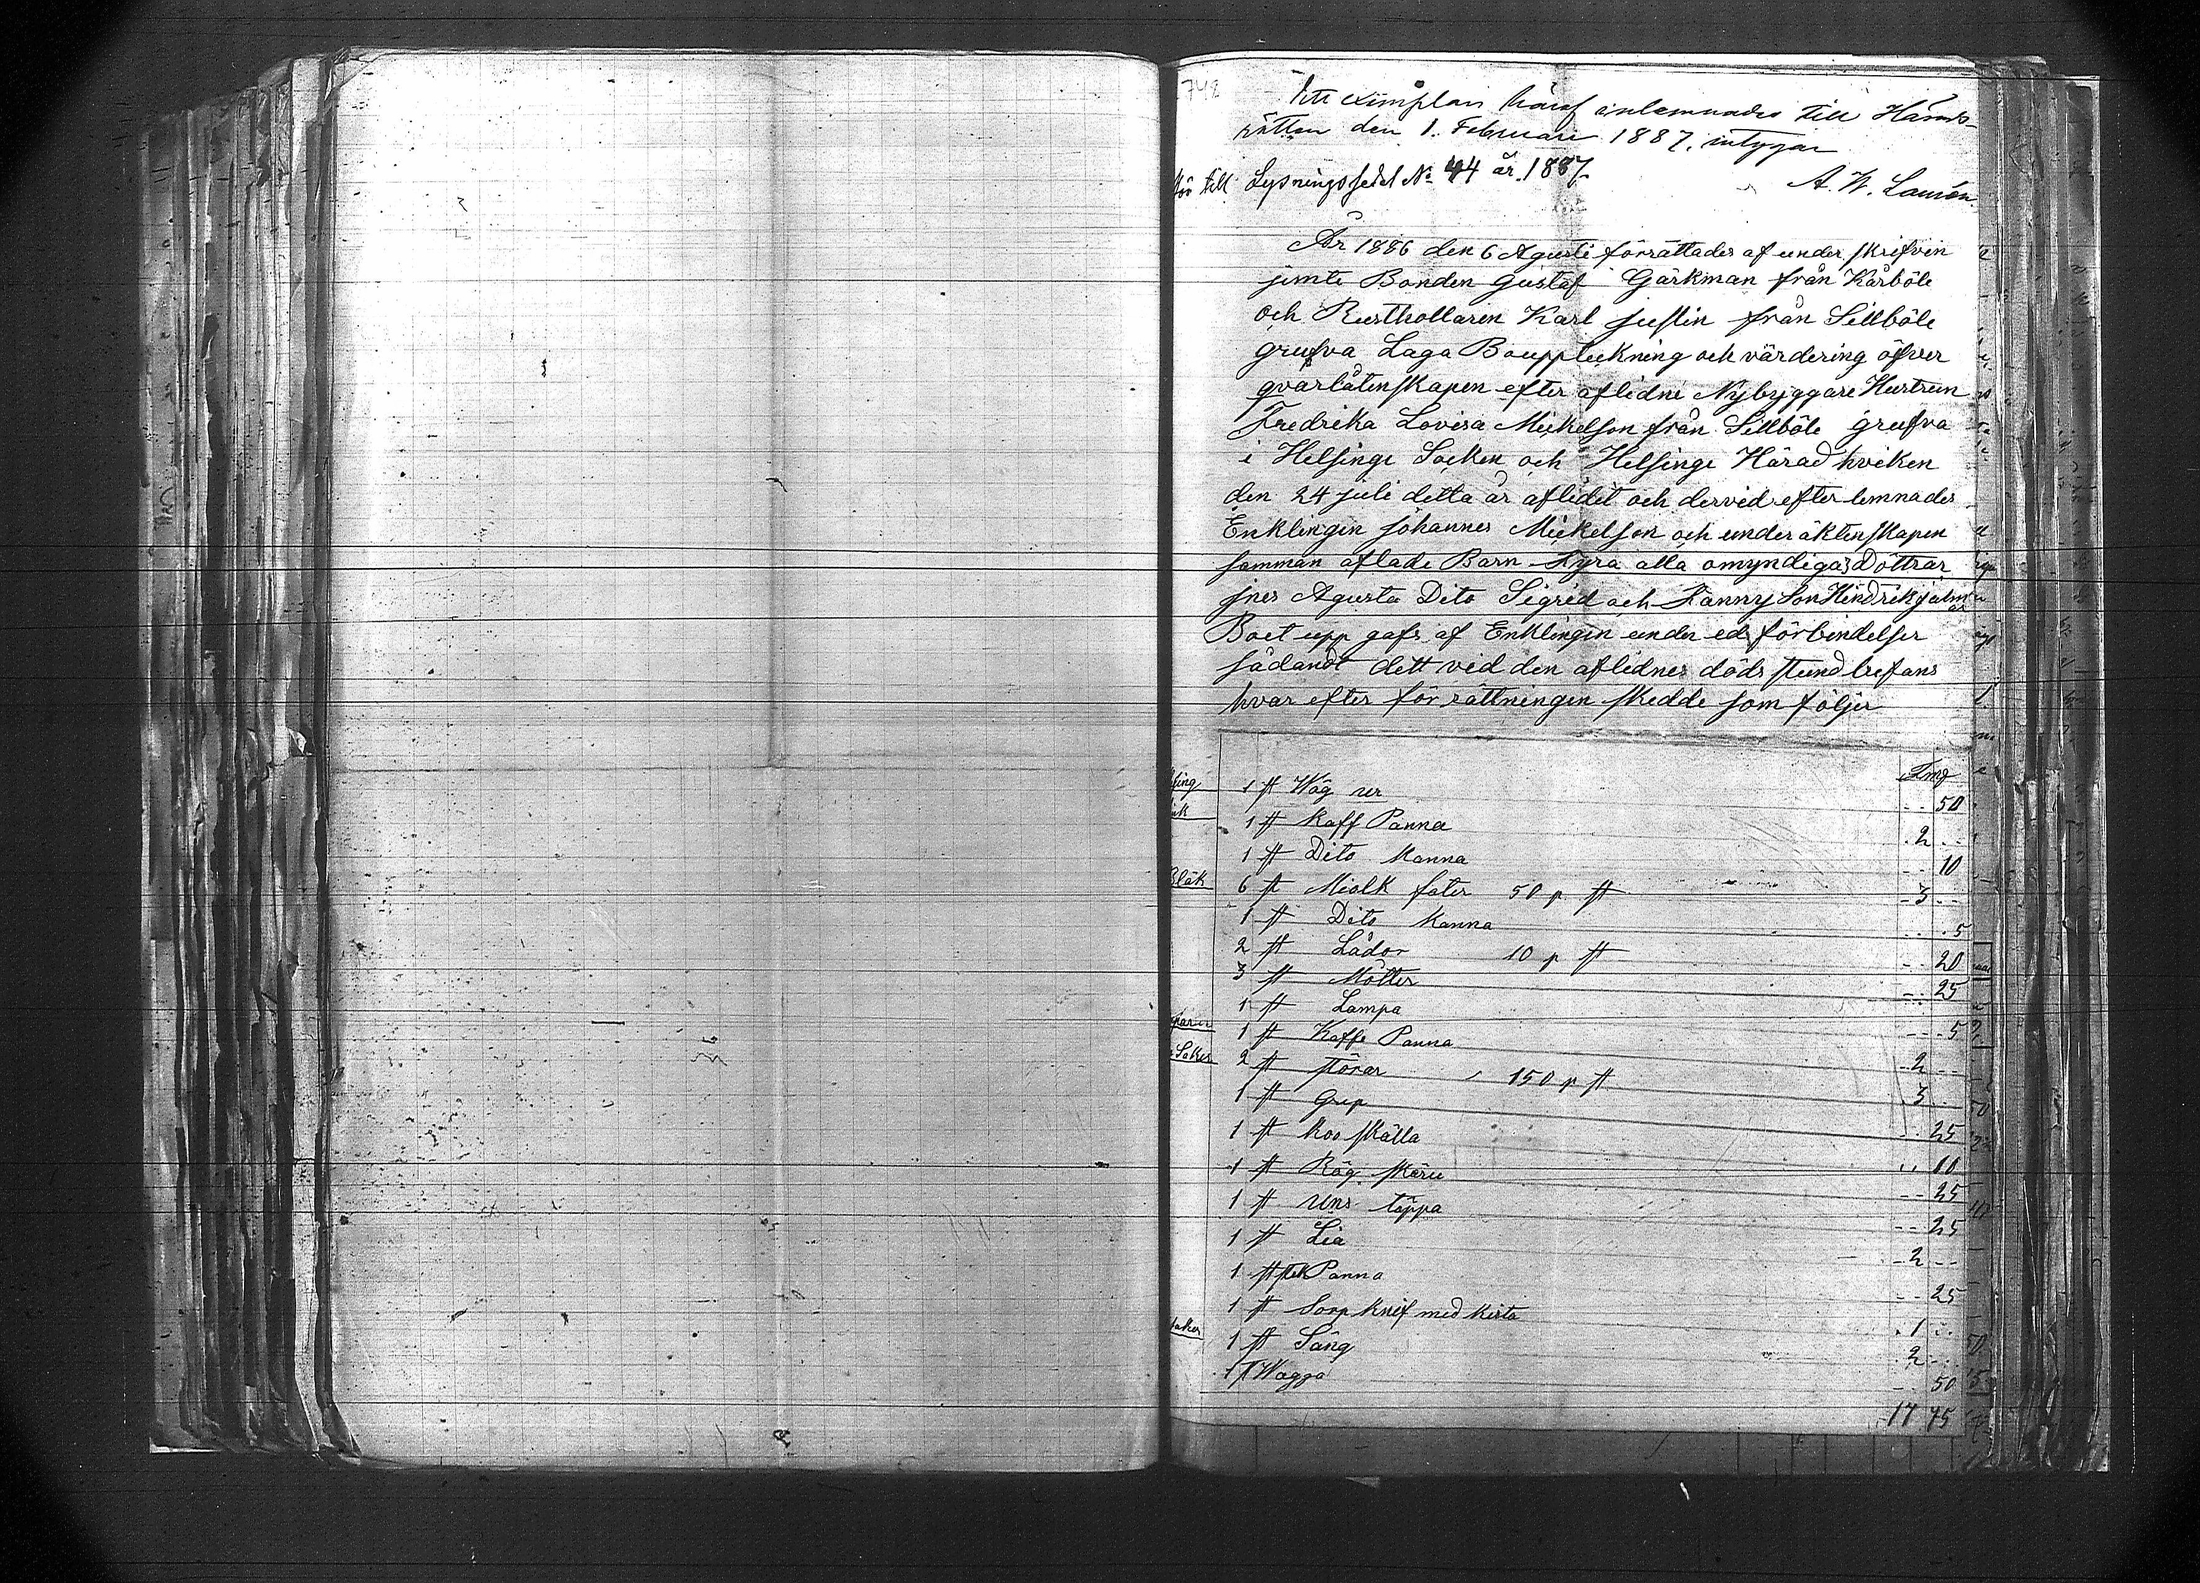 748
Ett exemplar häraf inlemnades till Härads-
rätten den 1. Februari 1887, intygar
A. W. Laurén
Hör till Lysningssedel No 44 år 1887.
År 1886 den 6 Agusti förrättades af under skrifven
jemte Bonden Gustaf Gärkman från Kårböle
och Rusthollaren Karl Justin från Sillböle
grufva Laga Bouppteckning och värdering öfver
qvarlåtenskapen efter aflidne Nybyggare Hustrun
Fredrika Lovisa Mickelson från Sillböle grufva
i Helsinge Socken och Helsinge Härad hvilken
den 24 juli detta år aflidet och dervid efter lemnades
Enklingin Johannes Mickelson och under äktenskapen
samman aflade Barn Fyra alla omyndiga 3 Döttrar
jnes Agusta Dito Sigrid och Fanny Son Hindrik jalmar
Boet upp gafs af Enklingin under ed förbindelser
sådandt dett vid den aflidnes döds stund befans
hvar efter för rättningen skedde som följer
Fmg
1 st Wäg ur -- 50
1 st Kaff Panna 2 --
1 st Dito Kanna -- 10
Bläk
6 st Miolk fater 50 p st 3 --
1 st Dito Kanna -- 5
2 st Lådor 10 p st -- 20
3 st Måtter -- 25
1 st Lampa -- 5
1 st Kaffe Panna 2 --
Saker
2 st störar 150 p st 3 --
1 st Grep -- 25
1 st Koo skälla -- 10
1 st Råg skäru -- 25
1 st Uns täppa -- 25
1 st Lia 2 --
1 st stek Panna -- 25
1 st Sorp knif med kista 1 --
1 st Säng 2 --
1 st Wagga -- 50
17 75